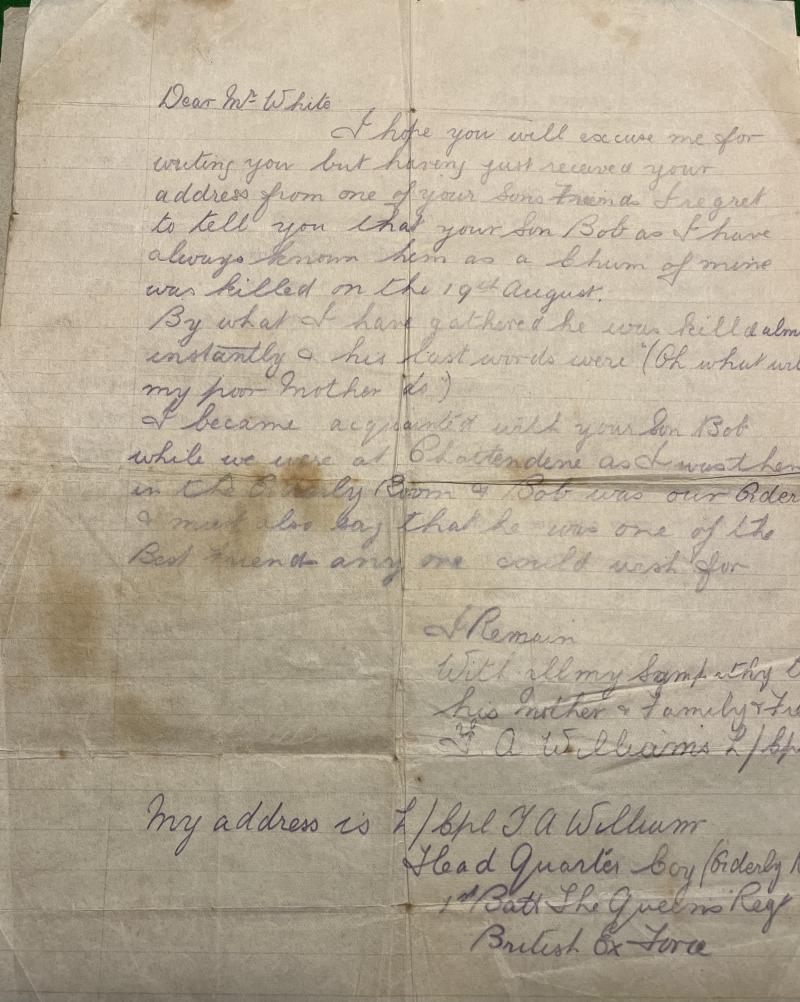 Dear Mr White
I hope you will excuse me for
writing you but having just received your
address from one of your Sons Friends I regret
to tell you that your Son Bob as I have
always known him as a Chum of mine
was killed on the 19th August.
By what I have gathered he was killed alm
instantly & his last words were "(Oh what wil
my poor Mother do")
I became acquainted with your Son Bob
while we were at Chattendene as I was then
in the Orderly Room & Bob was our Order
& must also say that he was one of the
Best Friend any one could wish for
I Remain
With all my Sympathy t
his Mother & Family & Fri
A Williams L/Cpl
My address is L/Cpl T A William
Head Quarter Coy (Orderly R
1st Batt The Queens Regt
British Ex Force